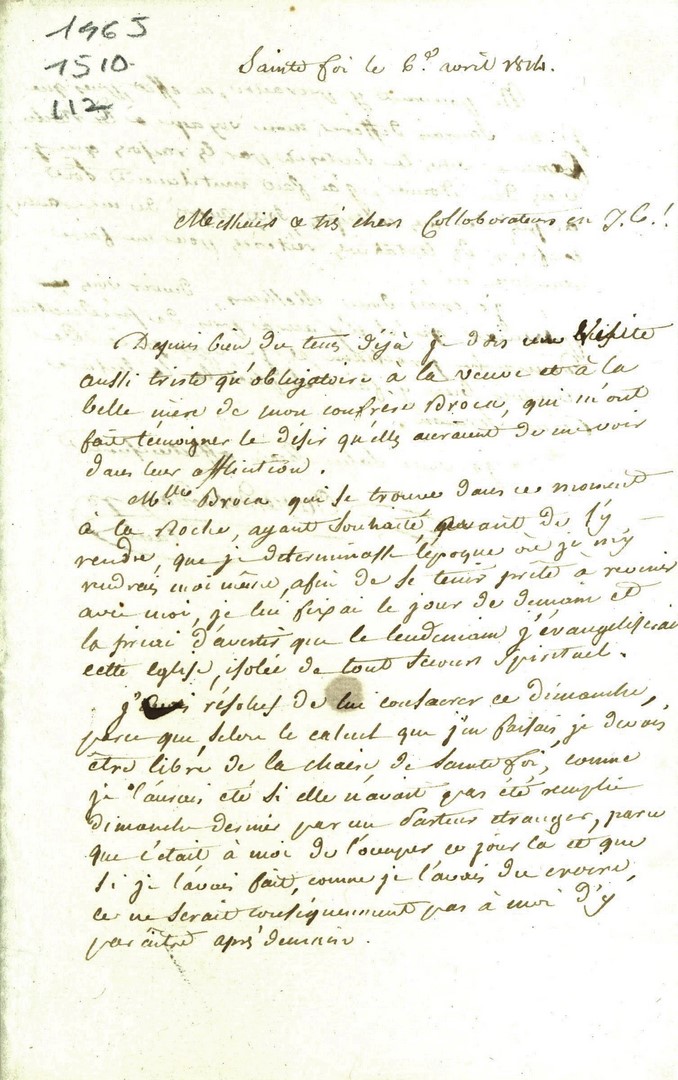 1965
1510
112
Sainte foi le 6.e avril 1814.
Messieurs & très chers Collaborateurs en J. C.!
Depuis bien du tems déjà je dois une visite
aussi triste qu'obligatoire à la veuve et à la
belle mère de mon confrère Broca, qui m'ont
fait témoigner le désir qu'elles auraient de me voir
dans leur affliction.
M.lle Broca qui se trouve dans ce moment
à la Roche, ayant souhaité, avant de s'y
rendre, que je determinasse l'époque où je m'y
rendrais moi même, afin de se tenir prête à revenir
avec moi, je lui fixai le jour de demain et
la priai d'avertir que le lendemain j'évangeliserais
cette église, isolée de tout secours spirituel.
J'avais résolus de lui consacrer ce dimanche,
parce que, selon le calcul que j'en faisais je devais
être libre de la chaire de Sainte foi, comme
je l'aurais été si elle n'avait pas été remplie
dimanche dernier par un Pasteur etranger, parce
que c'était à moi de l'occuper ce jour la et que
si je l'avais fait, comme je l'avois du croire,
ce ne serait conséquemment pas à moi d'y
paraître après demain.